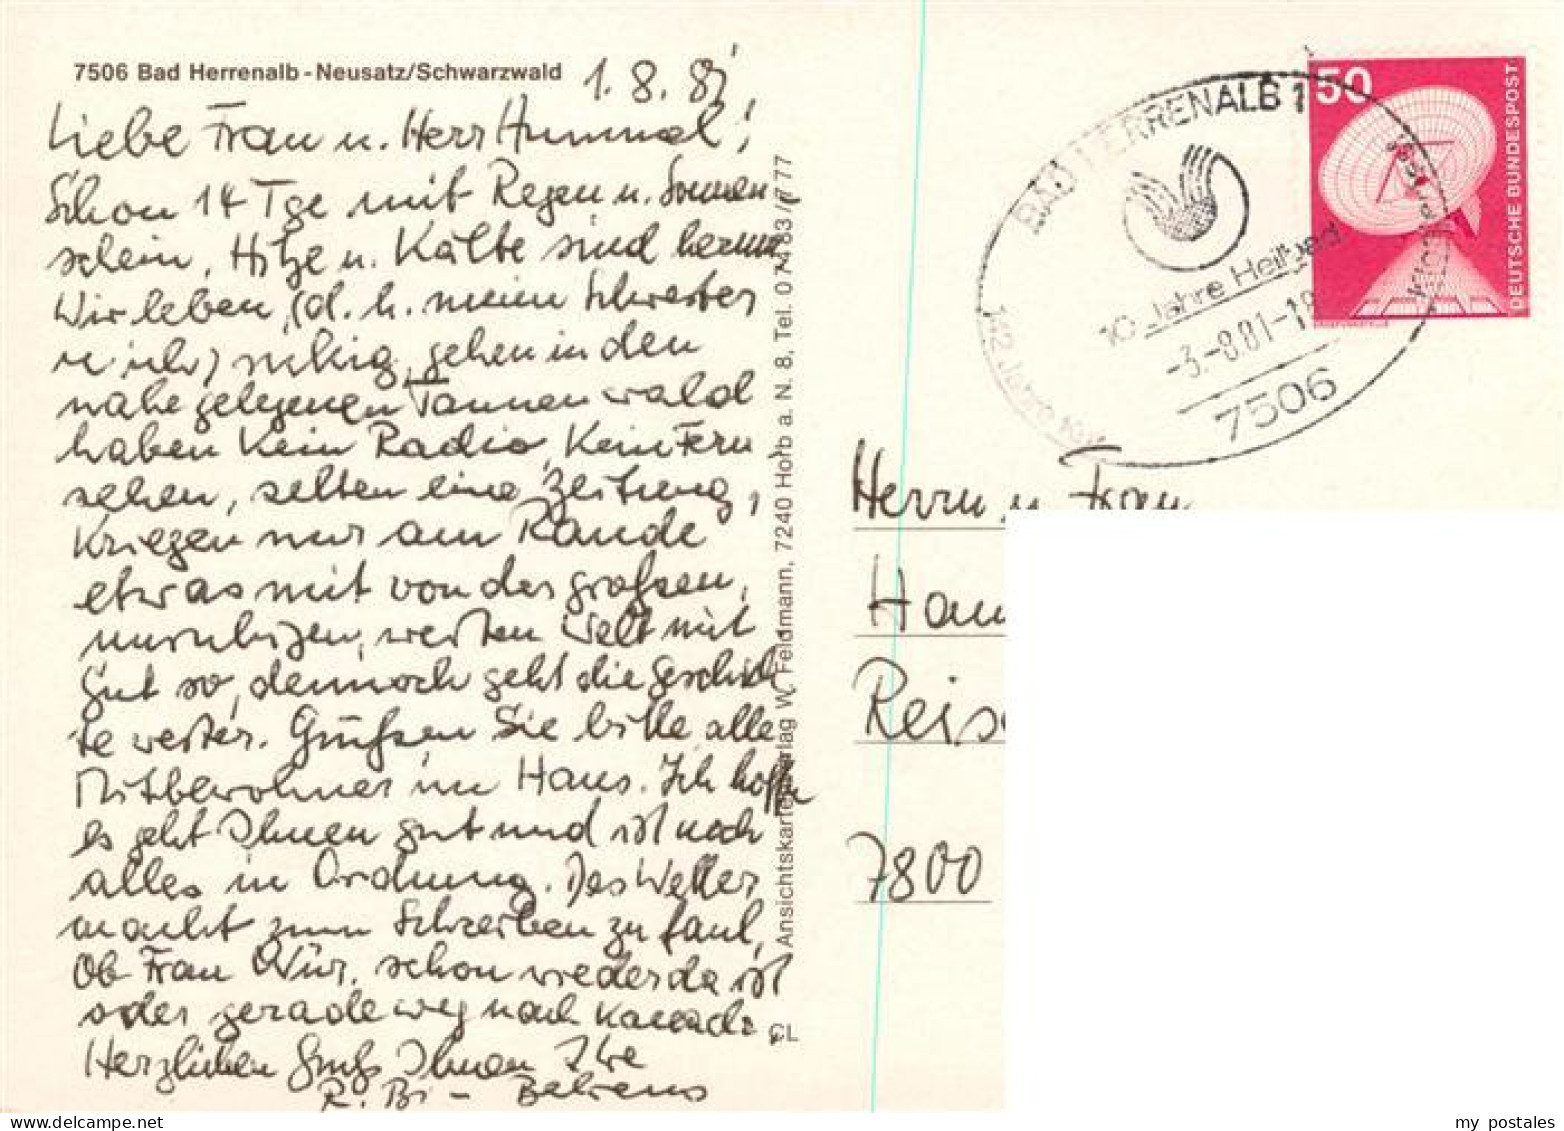 7506 Bad Herrenalb - Neusatz/Schwarzwald
1.8.81
Liebe Frau u. Herr Hummel!
Schon 14 Tge mit Regen u. Sonnen-
schein, Hitze u. Kälte sind herum
Wir leben, (d. h. meine Schwester
u ich) ruhig, gehen in den
nahe gelegenen Tannenwald
haben kein Radio, kein Fern
sehen, selten eine Zeitung,
kriegen nur am Rande
etwas mit von der großen,
unruhigen, weiten Welt mit
Gut so, dennoch geht die Geschich
te weiter. Grüßen Sie bitte alle
Mitbewohner im Haus. Ich hoffe
es geht Ihnen gut und ist noch
alles in Ordnung. Das Wetter
macht zum Schreiben zu faul,
Ob Frau Wür. schon wieder da ist
oder gerade weg nach Kanada
Herzlichen Gruß Ihnen Ihre
R. Bi - Behrens
Ansichtskartenverlag W. Feldmann, 7240 Horb a. N. 8, Tel. 07483/777
CL
BAD HERRENALB 1
10 Jahre Heilbad
-3.-8.81-1
7506
142 Jahre
50
DEUTSCHE BUNDESPOST
Herrn u Frau
Hau
Reis
7800
my postales